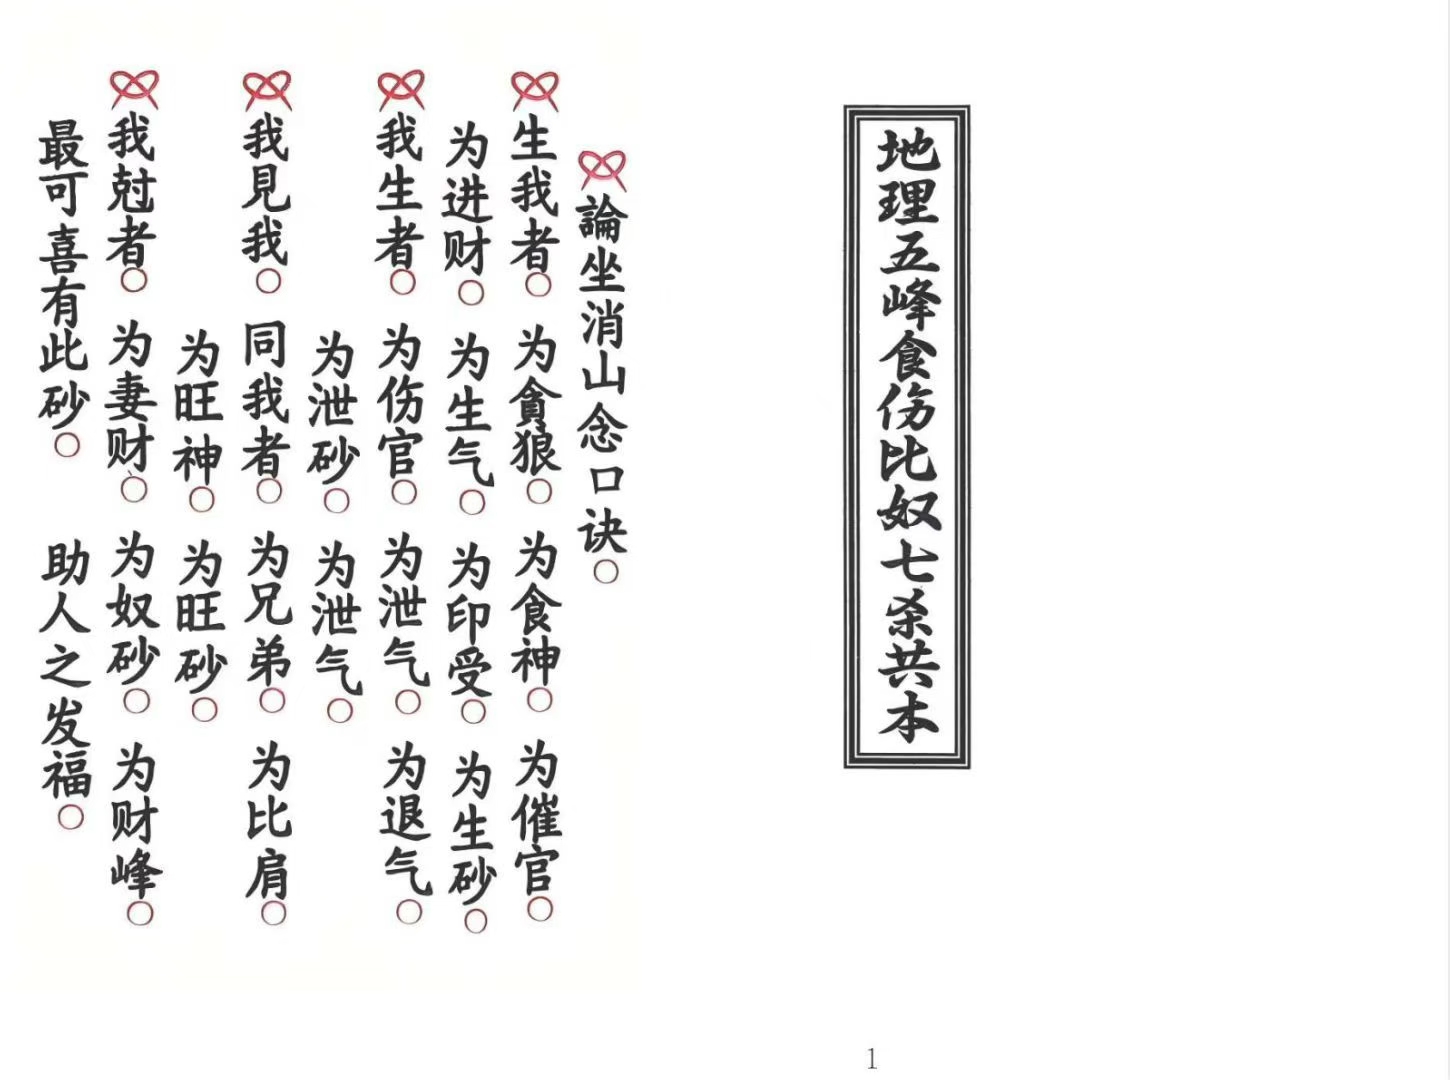 地理五峰食伤比奴七杀共本
論坐消山念口诀○
生我者○为貪狼○为食神○为催官○
为进财○为生气○为印受○为生砂○
我生者○为伤官○为泄气○为退气○
为泄砂○为泄气○
我見我○同我者○为兄弟○为比肩○
为旺神○为旺砂○
我尅者○为妻财○为奴砂○为财峰○
最可喜有此砂○助人之发福○
1